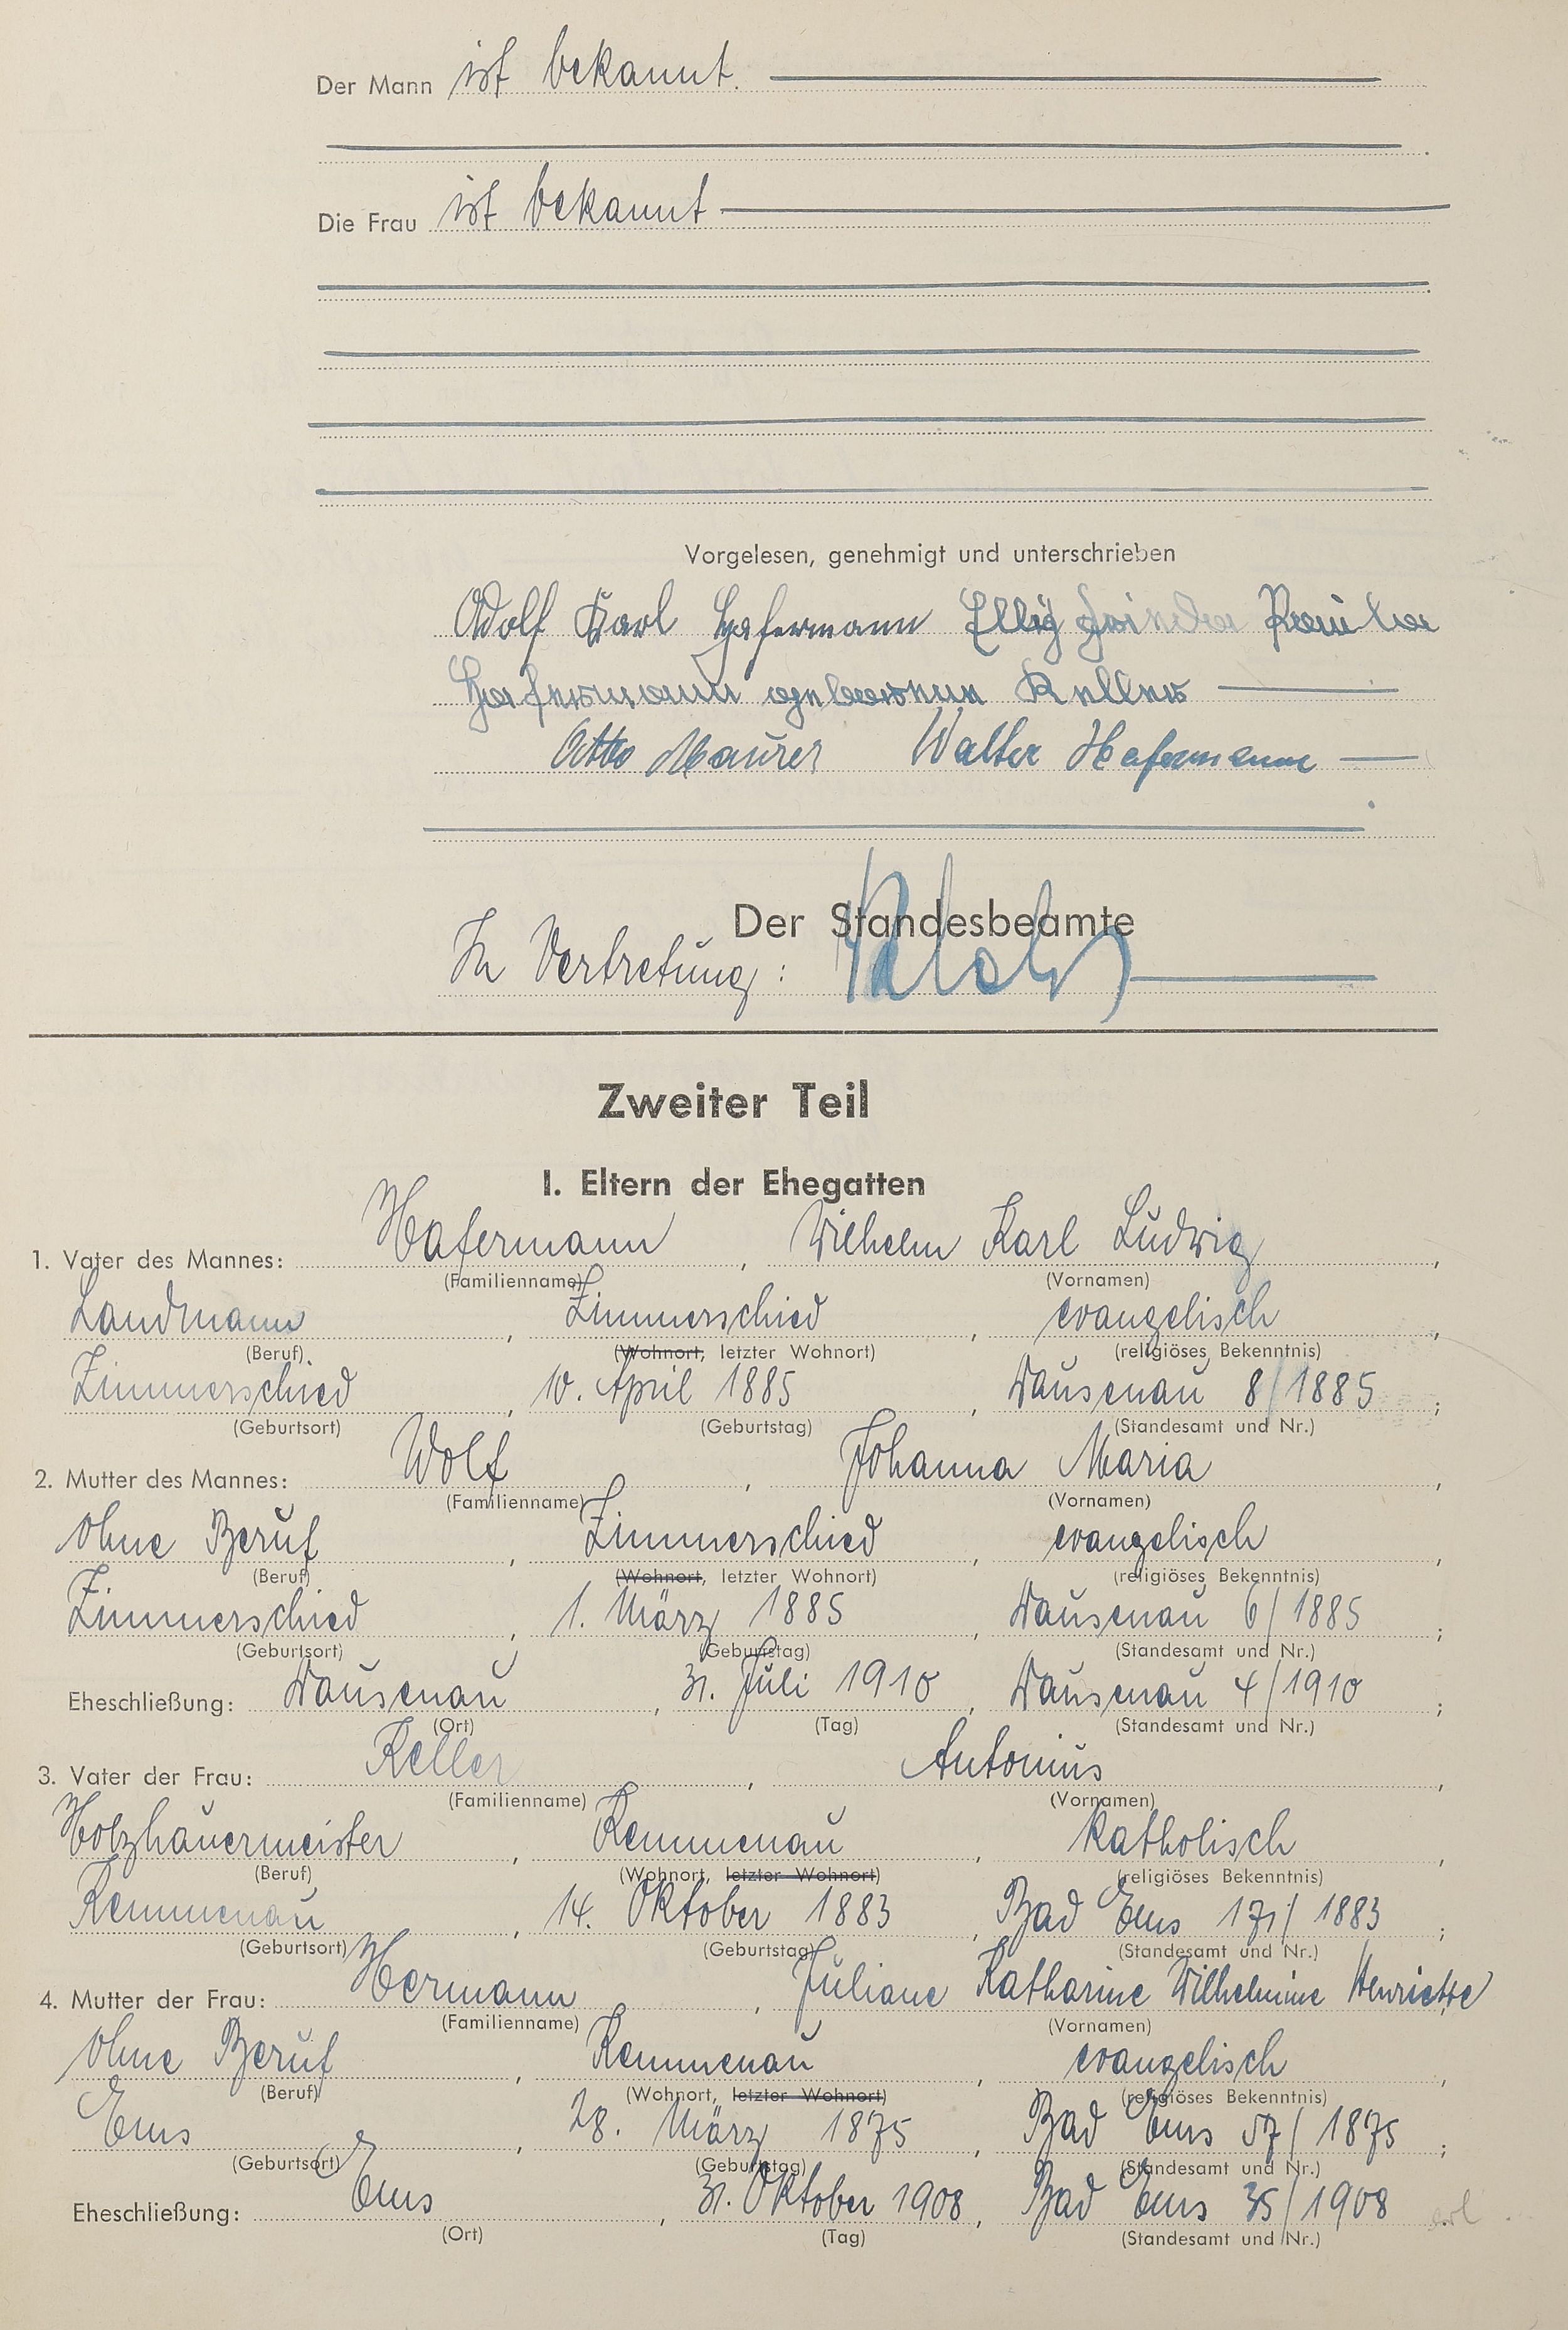 Der Mann ist bekannt.
Die Frau ist bekannt
Vorgelesen, genehmigt und unterschrieben
Adolf Karl Hafermann Elly
Hafermann geborene Keller
Otto Maurer Walter Hafermann
Der Standesbeamte
In Vertretung:
Zweiter Teil
I. Eltern der Ehegatten
1. Vater des Mannes: Hafermann, Wilhelm Karl Ludwig,
(Familienname) (Vornamen)
Landmann, Zimmerschied, evangelisch,
(Beruf) (Wohnort, letzter Wohnort) (religiöses Bekenntnis)
Zimmerschied, 10. April 1885, Dausenau 8/1885;
(Geburtsort) (Geburtstag) (Standesamt und Nr.)
2. Mutter des Mannes: Wolf, Johanna Maria,
(Familienname) (Vornamen)
ohne Beruf, Zimmerschied, evangelisch,
(Beruf) (Wohnort, letzter Wohnort) (religiöses Bekenntnis)
Zimmerschied, 1. März 1885, Dausenau 6/1885;
(Geburtsort) (Geburtstag) (Standesamt und Nr.)
Eheschließung: Dausenau, 31. Juli 1910, Dausenau 4/1910;
(Ort) (Tag) (Standesamt und Nr.)
3. Vater der Frau: Keller, Antonius,
(Familienname) (Vornamen)
Holzhauermeister, Kemmenau, katholisch,
(Beruf) (Wohnort, letzter Wohnort) (religiöses Bekenntnis)
Kemmenau, 14. Oktober 1883, Bad Ems 171/1883;
(Geburtsort) (Geburtstag) (Standesamt und Nr.)
4. Mutter der Frau: Hermann, Juliane Katharine Wilhelmine Henriette
(Familienname) (Vornamen)
ohne Beruf, Kemmenau, evangelisch,
(Beruf) (Wohnort, letzter Wohnort) (religiöses Bekenntnis)
Ems, 28. März 1875, Bad Ems 57/1875;
(Geburtsort) (Geburtstag) (Standesamt und Nr.)
Eheschließung: Ems, 31. Oktober 1908, Bad Ems 35/1908
(Ort) (Tag) (Standesamt und Nr.)